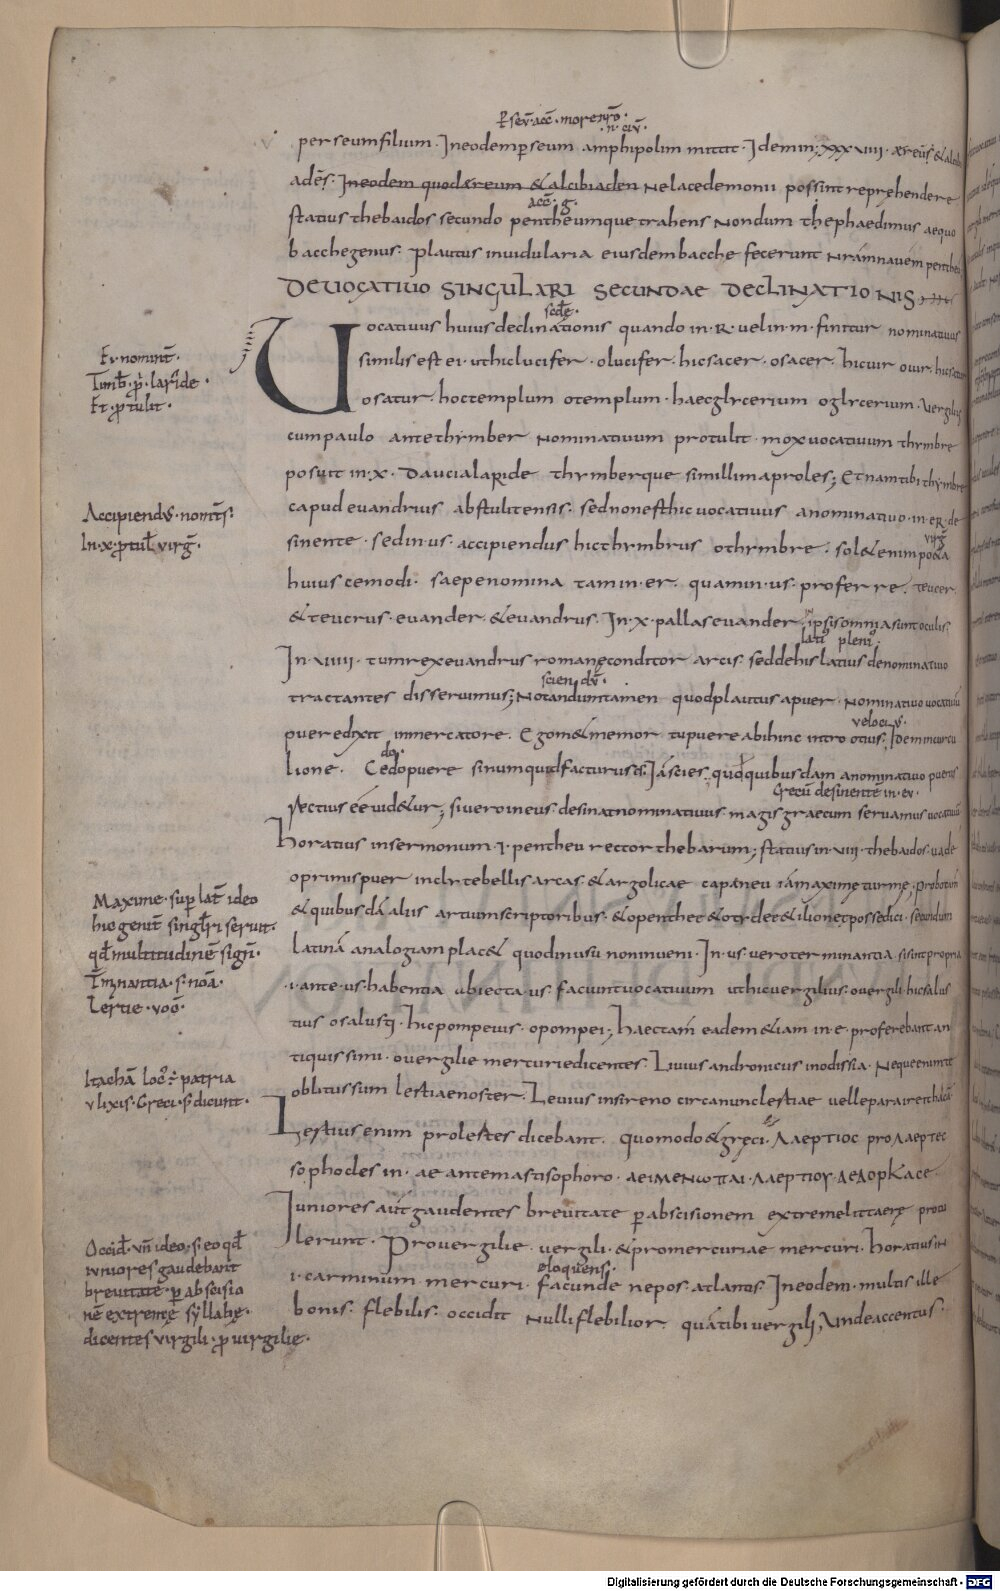 perseumfilium. Ineodem ꝑseum amphipolim mittit. Idem in; XXXVIIII. æreus & alcibi
adēs. Ineodem quodæreum & alcibiaden Nelacedemonii possint reprehendere
statius thebaidos secundo pentheumque trahens Nondum thephaedimus aequo
bacchegenus. Plautus inuidularia eiusdembacche fecerunt Nrámnauém pentheū
DEUOCATIUO SINGULARI SECUNDAE DECLINATIONIS
Uocatiuus huius declinationis quando in .R. uel in .m. finitur nominatiuus
similis est ei. uthiclucifer. olucifer. hicsacer. osacer. hicuir ouir. hicsatur
osatur. hoctemplum otemplum. haecglycerium oglycerium. Vergilius
cumpaulo antethymber Nominatiuum protulit. moxuocatiuum thymbre
posuit in .x. Daucialaride thymberque simillimaproles; Etnamtibi thymbre
capud euandrius abstulitensis. sednonesthic uocatiuus anominatiuo .in.eR.de
sinente. sed in .us. accipiendus hicthymbrus othymbre. sol& enim po&a
huiuscemodi. saepenomina tam in .er. quamin .us. proferre. teucer
& teucrus. euander. & euandrus. In .x. pallaseuander ipsisomniasuntoculis
In .VIIII. tumrexeuandrus romaneconditor arcis. seddehis latius denominatiuo
tractantes disserumius; Notandumtamen quodplautus apuer. Nominatiuo uocatiuū
puere dixit inmercatore. Egom&memor tupuere abihinc intro otius. Idemincurcu
lione. Cedopuere sinumquidfacturuse. Iāscies. quod quibusdam anominatiuo puerus
rectius eē uid&ur; siueroineus. desinatnominatiuus. magis graecum seruamus uocatiuū
horatius insermonum .I. pentheu rector thebarum; statius in .VIII. thebaidos. uade
oprimispuer inclytebellis arcas. & argolicae capaneu iāmaxime turme; probotum
& quibusdā aliis artiumscriptoribus. & openthe & otyde & ilione posse dici. secundum
latinā analogiam plac& quod inusu noninueni. In .us. ueroterminantia sisintpropria
.i. ante .us. habentia abiecta .us. faciuntuocatiuum uthicuergilius. ouergili. hicsalus
tius osalusti. hicpompeius. opompei; haectam eadem &iam in .e. proferebant an
tiquissimi. ouergilie mercuriedicentes. Liuius andronicus inodissia. Nequeenimte
oblitussum lertiaenoster. Leuius insireno circanunclertiae uelleparaireithacā
Lertius enim prolertes dicebant. quomodo & greci. ΛΑΕΡΤΙΟC pro ΛΑΕΡΤΕC
sophocles in. ae antemastisophoro. ΑΕΙΜΕΝωΠΑΙ. ΛΑΕΡΤΙΟΥ. ΔΕΔΟΡΚΑCΕ
Iuniores aūt gaudentes breuitate ꝑ abscisionem extremelitterę protu
lerunt. Prouergilie uergili. & promercuriae mercuri. horatius in
.i. carminum mercuri. facunde nepos. atlantis. Ineodem. multis ille
bonis. flebilis. occidit nulliflebilior. quātibi uergili, Undeaccentus.
Maxime. suꝑ lat̄ ideo
hic genit̄ singl̄ri seruit.
qd̄ multitudinē sign̄.
Itachā loc̄ patria
ulixis. Greci. s̄ dicunt.
iuniores gaudebant
breuitate. ꝑ abscisio
nē extreme syllabę.
dicentes uirgili. ꝓ uirgilie.
Digitalisierung gefördert durch die Deutsche Forschungsgemeinschaft - DFG